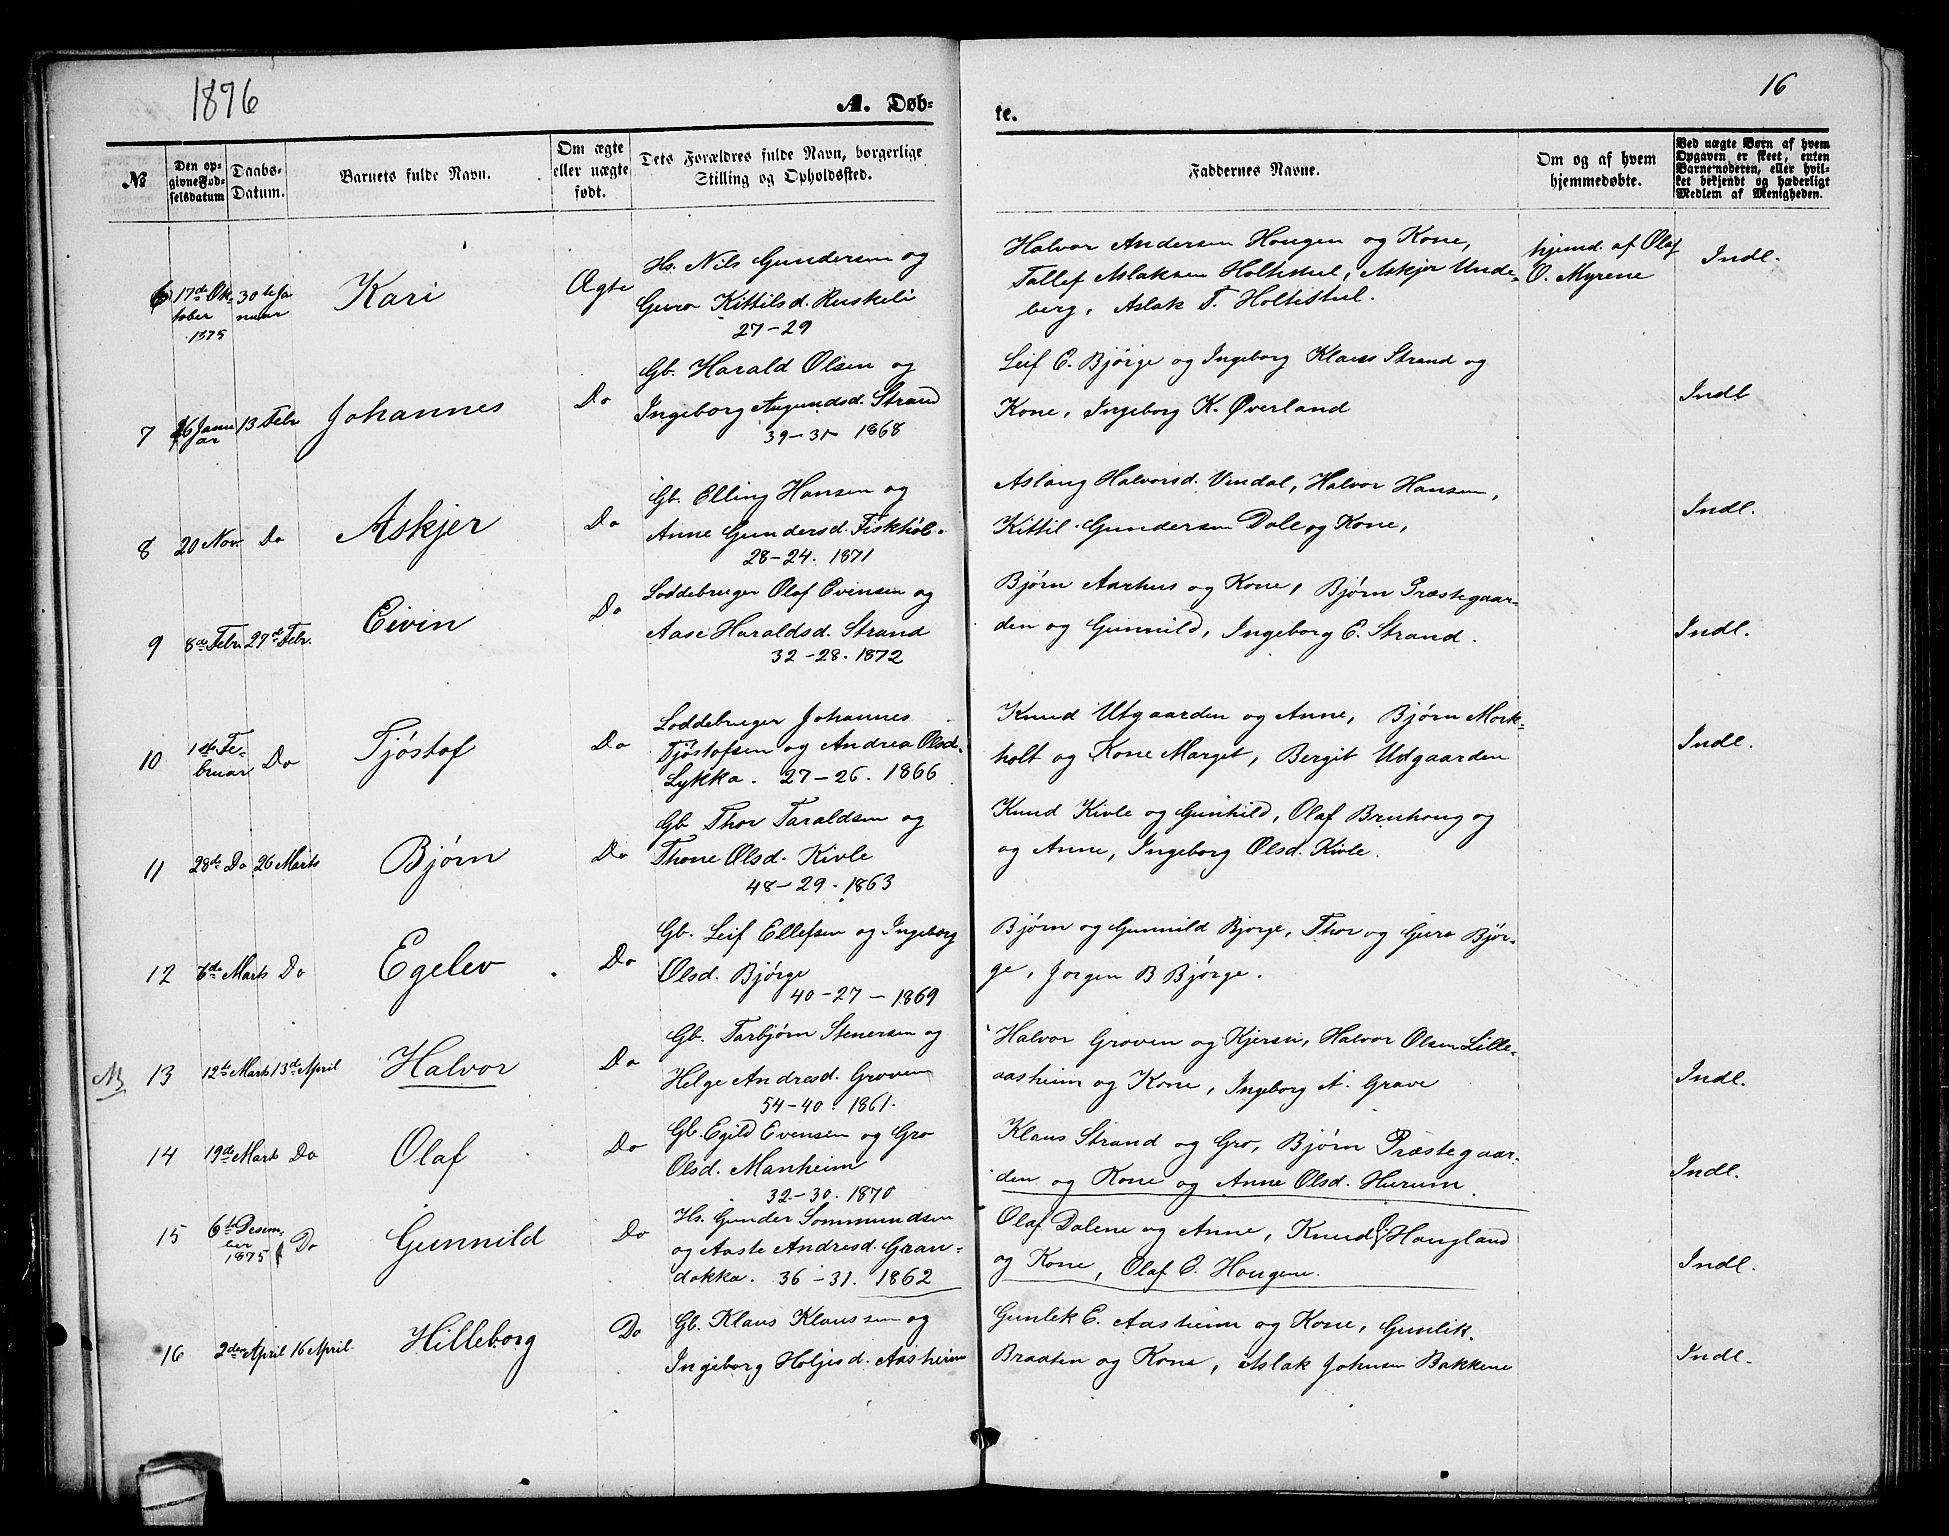 1876
16
A. Døb-
te.
№
Den op-
givne Fød-
selsdatum
Daabs-
Datum.
Barnets fulde Navn.
Om ægte
eller uægte
født.
Dets Forældres fulde Navn, borgerlige
Stilling og Opholdssted.
Faddernes Navne.
Om og af hvem
hjemmedøbte.
Ved uægte Børn af hvem
Opgaven er skeet, enten
Barnemoderen, eller hvil-
ket bekjendt og hæderligt
Medlem af Menigheden.
6
17de Ok-
tober
1875
30te Ja
nuar
Kari
Ægte
Hs. Nils Gundersen og
Guro Kittilsd. Ruskeli
27-29
Halvor Andersen Hougen og Kone,
Tallef Aslaksen Holtestul, Askjer Unde-
berg, Aslak T. Holtestul.
hjemd. af Olaf
O. Myrene
Indl.
7
26 Janu
ar
13 Febr
Johannes
Do
Gb. Harald Olsen og
Ingeborg Augundsd. Strand
39-31 1868
Leif E. Bjørge og Ingeborg Klaus Strand og
Kone, Ingeborg K. Øverland
Indl
8
20 Nov.
Do
Askjer
Do
Gb. Elling Hansen og
Anne Gundersd. Fiskhøl.
28-24. 1871
Aslaug Halvorsd. Vindal, Halvor Hansen,
Kittil Gundersen Dale og Kone,
Indl.
9
8de Febr.
27de Febr.
Eivin
Do
Loddebruger Olaf Evensen og
Aase Haraldsd. Strand
32-28. 1872
Bjørn Aarhus og Kone, Bjørn Præstegaar-
den og Gunnild, Ingeborg E. Strand.
Indl.
10
1ste Fe-
bruar
Do
Tjøstof
Do
Loddebruger Johannes
Tjøstofsen og Andrea Olsd.
Lykka. 27-26. 1866
Knud Utgaarden og Anne, Bjørn Mork-
holt og Kone Margit, Bergit Udgaarden
Indl.
11
28de Do
26 Marts
Bjørn
Do
Gb Thor Taraldsen og
Thone Olsd. Kivle
48-29. 1863
Knud Kivle og Gunhild, Olaf Bruhoug og
og Anne, Ingeborg Olsd. Kivle.
12
6de Marts
Do
Egelev
Do
Gb. Leif Ellefsen og Ingeborg
Olsd. Bjørge
40-27-1869
Bjørn og Gunnild Bjørge, Thor og Guro Bjør-
ge, Jorgen B Bjørge.
13
12te Marts
13de April
Halvor
Do
Gb. Tarbjørn Stenersen og
Helge Andresd. Groven
54-40. 1861.
Halvor Groven og Kjersti, Halvor Olsen Lille-
aasheim og Kone, Ingeborg A. Grave
Indl.
14
19de Marts
Do
Olaf
Do
Gb. Egild Evensen og Gro
Olsd. Manheim
32-30. 1870
Klaus Strand og Gro, Bjørn Præstegaar-
den og Kone og Anne Olsd. Hurum.
Indl.
15
6te Desem
ber
1875
Do
Gunnild
Do
Hs. Gunder Sommundsen
og Aaste Andresd. Gran-
dokka. 36-31. 1862
Olaf Dalene og Anne, Knud O Hougland
og Kone, Olaf E. Hougene.
Indl.
16
2den April
16 April.
Hilleborg
Do
Gb. Klaus Klaussen og
Ingeborg Holjesd. Aasheim
Gunlek E. Aasheim og Kone, Gunlik.
Braaten og Kone, Aslak Johnsen Bakkene
Indl.